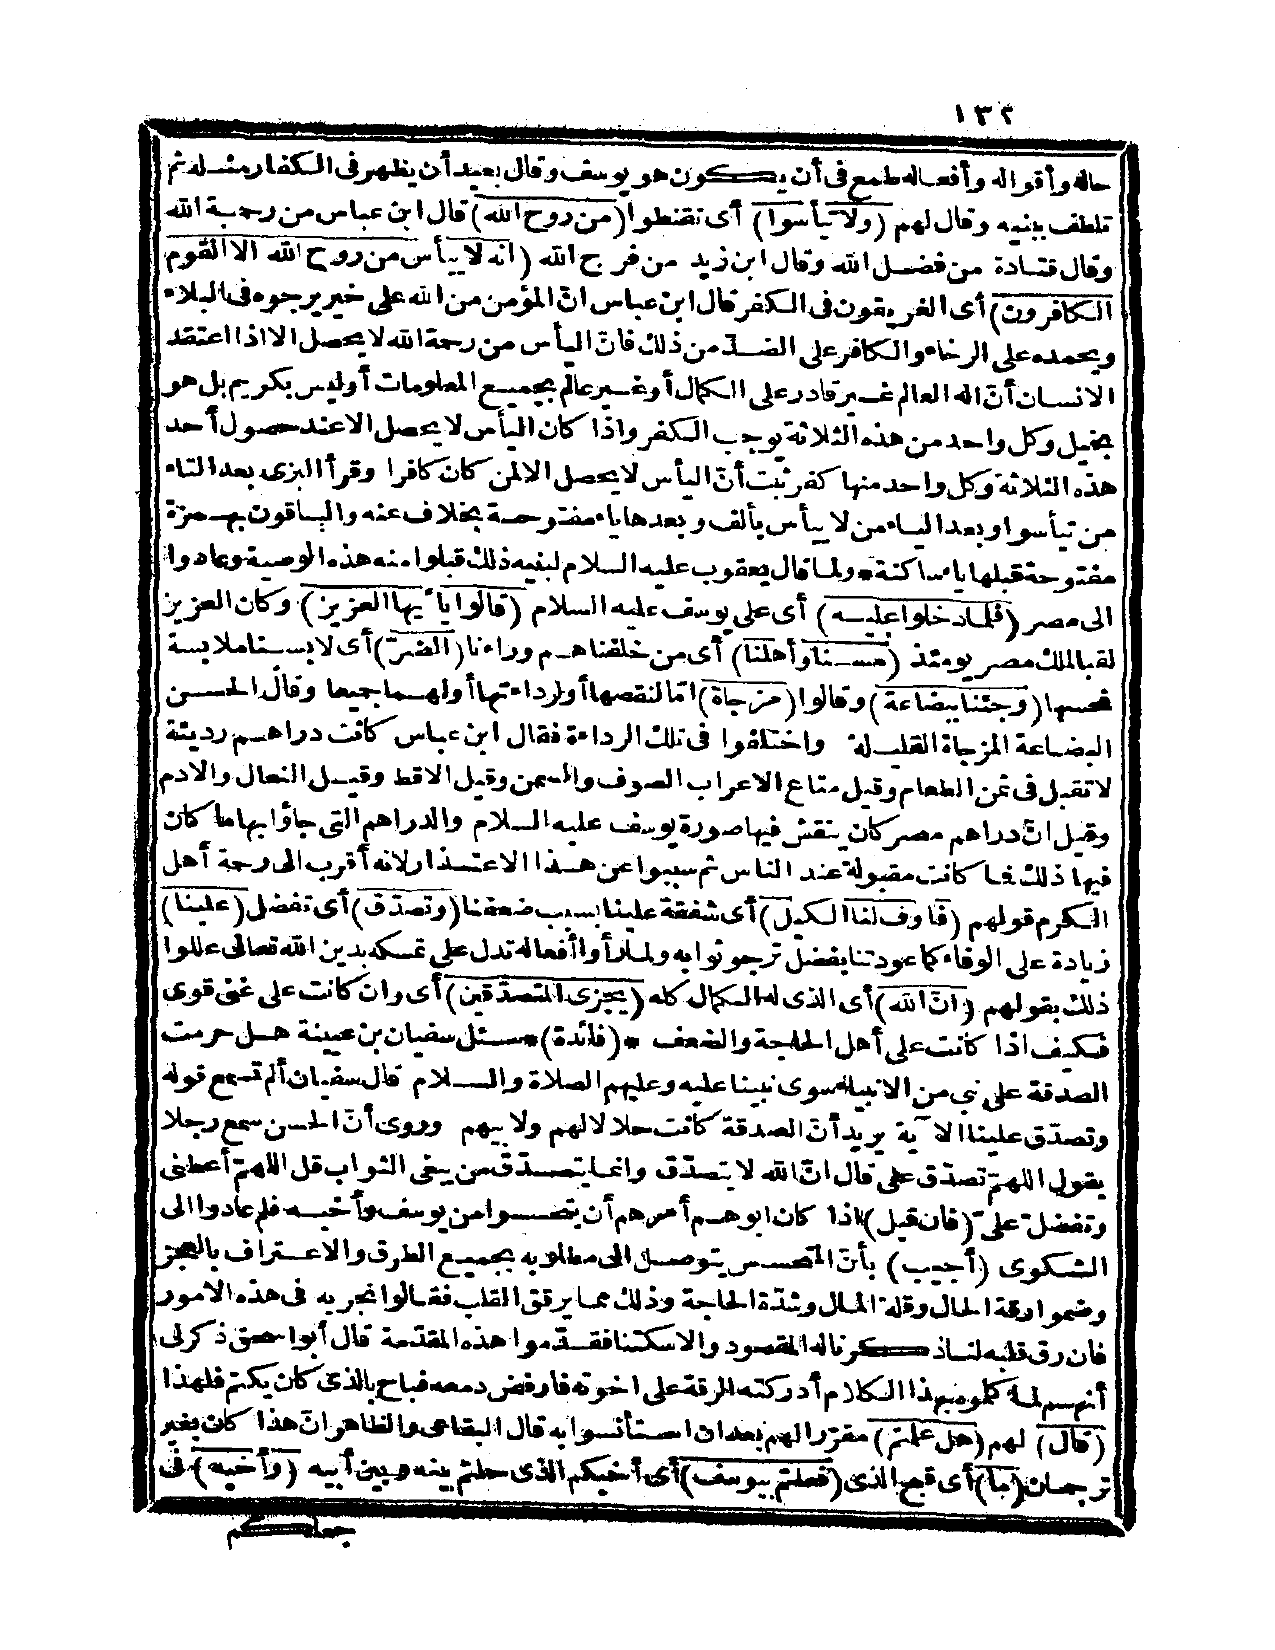 ١٣٢
حاله وأقواله وأفعاله طمع فى أن يكون هو يوسف وقال بعيد أن يظهر فى الكفار مثله ثم
تلطف ببنيه وقال لهم (ولا تيأسوا) أى تقنطوا (من روح الله) قال ابن عباس من رحمة الله
وقال قتادة من فضل الله وقال ابن زيد من فرج الله (انه لا ييأس من روح الله الا القوم
الكافرون) أى الغريقون فى الكفر قال ابن عباس انّ المؤمن من الله على خير يرجوه فى البلاء
ويحمده على الرخاء والكافر على الضدّ من ذلك فانّ اليأس من رحمة الله لا يحصل الا اذا اعتقد
الانسان أنّ اله العالم غير قادر على الكمال أو غير عالم بجميع المعلومات أو ليس بكريم بل هو
بخيل وكل واحد من هذه الثلاثة يوجب الكفر واذا كان اليأس لا يحصل الا عند حصول أحد
هذه الثلاثة وكل واحد منها كفر ثبت أنّ اليأس لا يحصل الا لمن كان كافرا وقرأ البزى بعد التاء
من تيأسوا وبعد الياء من لا ييأس بألف وبعدها ياء مفتوحة بخلاف عنه والباقون بهمزة
مفتوحة قبلها ياء ساكنة * ولما قال يعقوب عليه السلام لبنيه ذلك قبلوا منه هذه الوصية وعادوا
الى مصر (فلما دخلوا عليه) أى على يوسف عليه السلام (قالوا يا أيها العزيز) وكان العزيز
لقبا لملك مصر يومئذ (مسنا وأهلنا) أى من خلفناهم وراءنا (الضرّ) أى لابسنا ملابسة
نحسها (وجئنا ببضاعة) وقالوا (مزجاة) امّا لنقصها أو لرداءتها أو لهما جميعا وقال الحسن
البضاعة المزجاة القليلة واختلفوا فى تلك الرداءة فقال ابن عباس كانت دراهم رديئة
لا تقبل فى ثمن الطعام وقيل متاع الاعراب الصوف والسمن وقيل الاقط وقيل النعال والادم
وقيل انّ دراهم مصر كان ينقش فيها صورة يوسف عليه السلام والدراهم التى جاؤا بها ما كان
فيها ذلك فما كانت مقبولة عند الناس ثم سببوا عن هذا الاعتذار لانه أقرب الى رحمة أهل
الكرم قولهم (فأوف لنا الكيل) أى شفقة علينا بسبب ضعفنا (وتصدّق) أى تفضل (علينا)
زيادة على الوفاء كما عودتنا بفضل ترجو ثوابه ولما رأوا أفعاله تدل على تمسكه بدين الله تعالى عللوا
ذلك بقولهم (انّ الله) أى الذى له الكمال كله (يجزى المتصدّقين) أى وان كانت على غنى قوى
فكيف اذا كانت على أهل الحاجة والضعف * (فائدة) * سئل سفيان بن عيينة هل حرمت
الصدقة على نبى من الانبياء سوى نبينا عليه وعليهم الصلاة والسلام قال سفيان ألم تسمع قوله
وتصدّق علينا الآية يريد أنّ الصدقة كانت حلالا لهم ولابيهم وروى أنّ الحسن سمع رجلا
يقول اللهمّ تصدّق علىّ قال انّ الله لا يتصدّق وانما يتصدّق من يبغى الثواب قل اللهمّ أعطنى
وتفضل علىّ (فان قيل) اذا كان ابوهم أمرهم أن يتحسسوا من يوسف وأخيه فلم عادوا الى
الشكوى (أجيب) بأنّ المتحسس يتوصل الى مطلوبه بجميع الطرق والاعتراف بالعجز
وضموا رقة الحال وقلة المال وشدّة الحاجة وذلك مما يرقق القلب فقالوا نجربه فى هذه الامور
فان رق قلبه لنا ذكرنا له المقصود والا سكتنا فقدّموا هذه المقدّمة قال أبو اسحق ذكر لى
أنهم لما كلموه بهذا الكلام أدركته الرقة على اخوته فارفض دمعه فباح بالذى كان يكتم فلهذا
(قال) لهم (هل علمتم) مقرّرا لهم بعد ان استأنسوا به قال البقاعى والظاهر انّ هذا كان بغير
ترجمان (ما) أى قبح الذى (فعلتم بيوسف) أى أخيكم الذى حلتم بينه وبين أبيه (وأخيه) فى
جعلكم